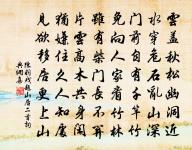 雲蓋秋松幽洞近
水穿危石亂山深
門前自有千竿竹
免向人家看竹林
雖有柴門長不關
片雲高木共身閑
猶嫌住久人知處
見欲移居更上山
陳羽戲題山居二首